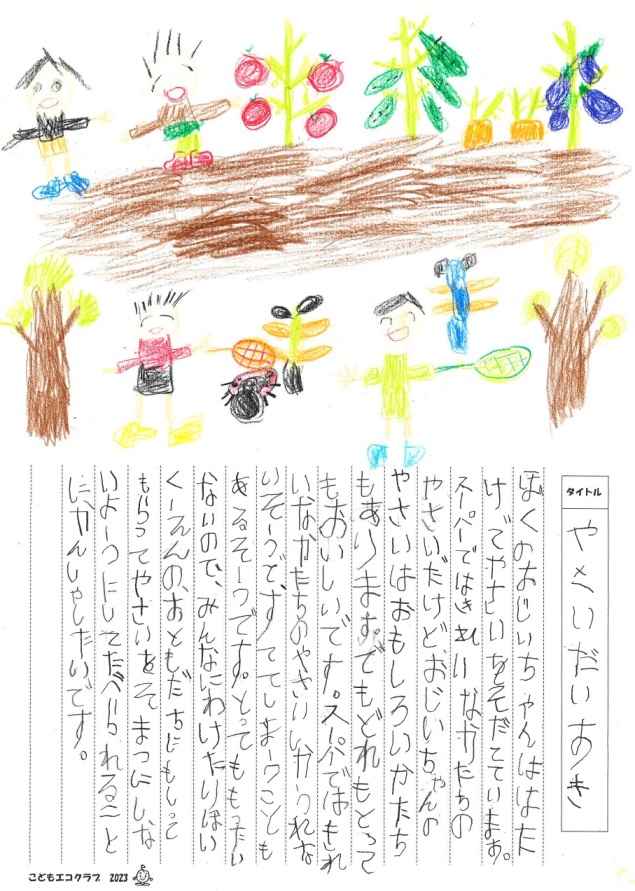 タイトル
やさいだいすき
ぼくのおじいちゃんははた
けでやさいをそだてています。
スーパーではきれいなかたちの
やさいだけど、おじいちゃんの
やさいはおもしろいかたち
もあります。でもどれもとって
もおいしいです。スーパーではきれ
いなかたちのやさいしかうれな
いそうです。すててしまうことも
あるそうです。とってももったい
ないので、みんなにわけたりほい
くえんの、おともだちにもしって
もらってやさいをそまつにしな
いようにしてたべられること
にかんしゃしたいです。
こどもエコクラブ 2023